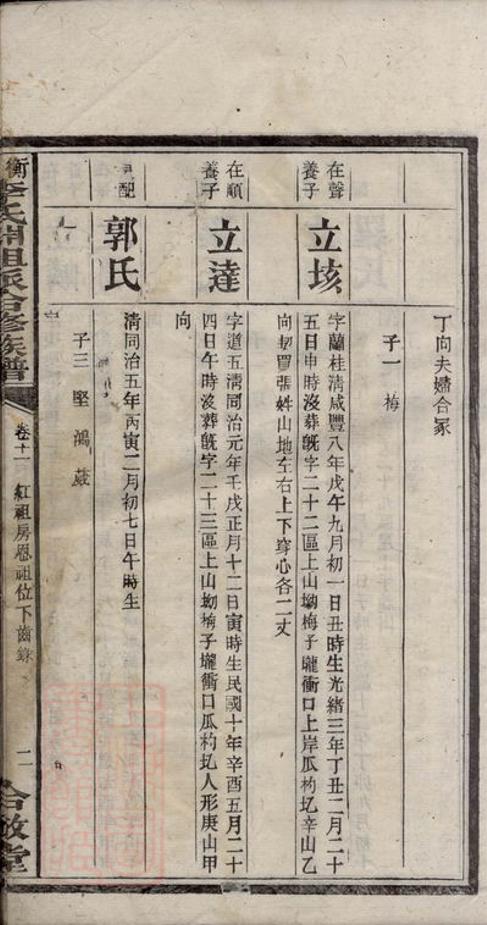 丁向夫婦合冢
子一　梅
在聲
養子
立垓
字蘭桂清咸豐八年戊午九月初一日丑時生光緒三年丁丑二月二十
五日申時沒葬旣字二十二區上山坳梅子壠衝口上岸瓜杓圪辛山乙
向契買張姓山地左右上下穿心各二丈
在順
養子
立達
字道五清同治元年壬戌正月十二日寅時生民國十年辛酉五月二十
四日午時沒葬旣字二十三區上山坳梅子壠衝口瓜杓圪人形庚山甲
向
配
郭氏
清同治五年丙寅二月初七日午時生
子三　堅　鴻　葳
衡
李氏開祖派合修族譜
卷十一
紅祖房恩祖位下齒錄
二
合敬堂